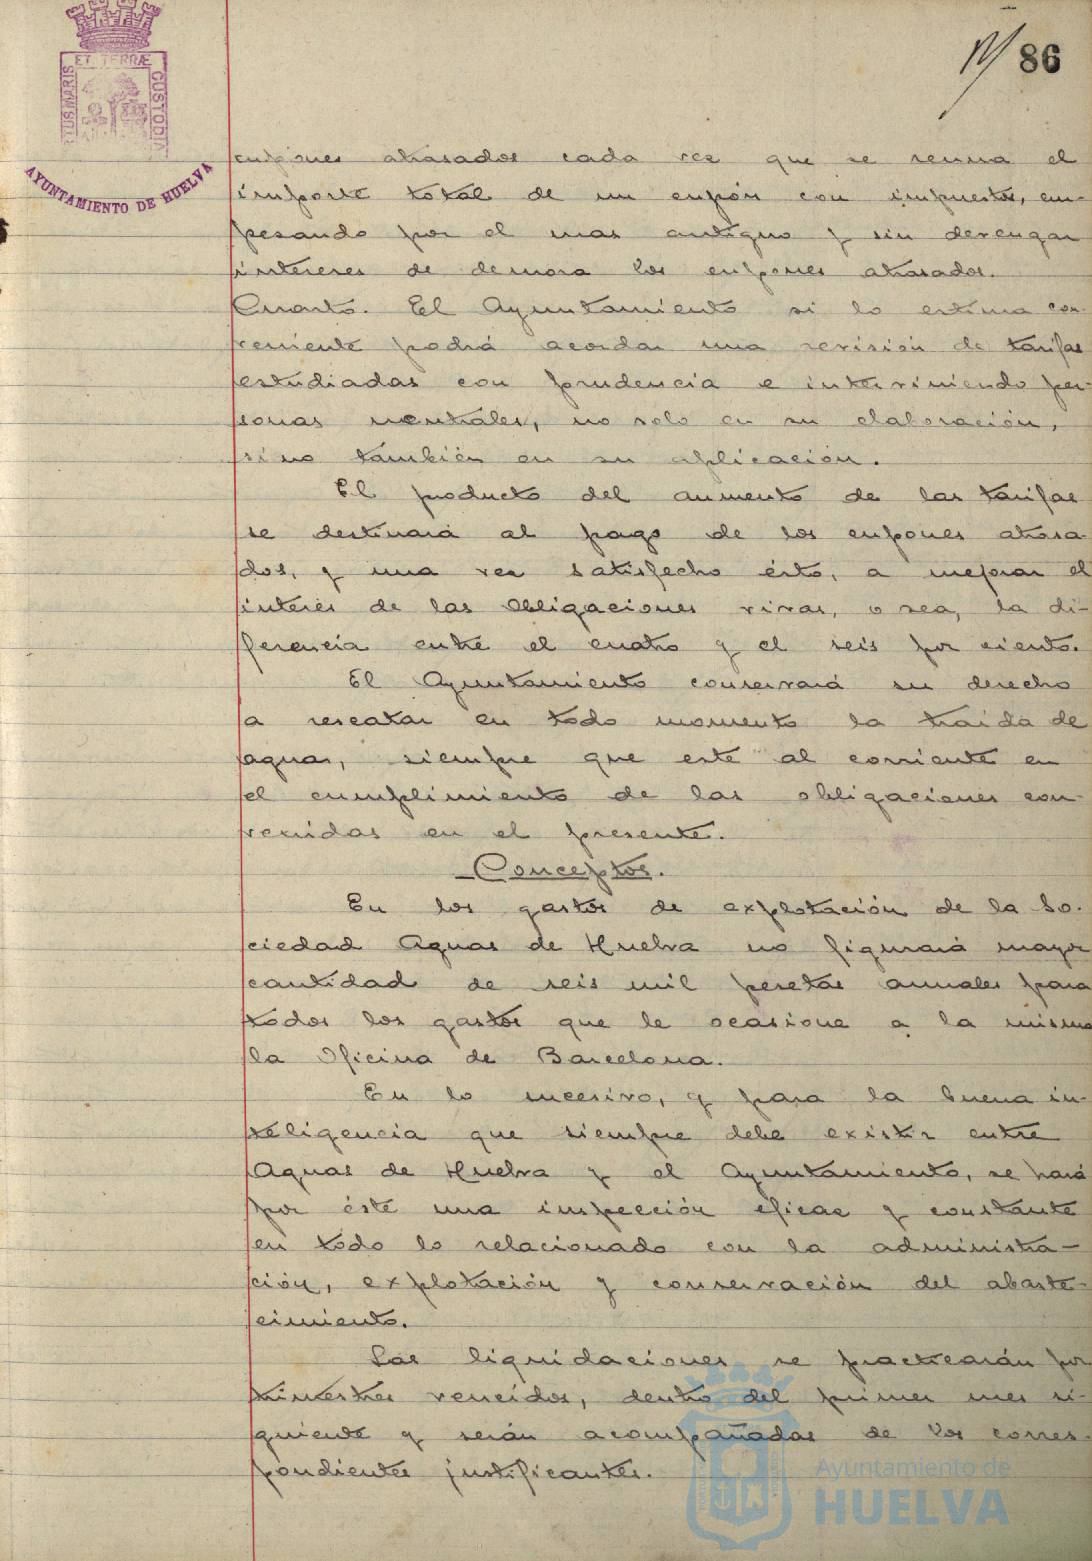 86
ET TERRÆ
CUSTODIA
AYUNTAMIENTO DE HUELVA
cupones atrasados cada vez que se reuna el
importe total de un cupón con impuestos, em-
pesando por el mas antiguo y sin devengar
intereses de demora los cupones atrasados.
Cuarto. El Ayuntamiento si lo estima con-
veniente podrá acordar una revisión de tarifas
estudiadas con prudencia e interviniendo per-
sonas neutrales, no solo en su elaboración,
sino también en su aplicación.
El producto del aumento de las tarifas
se destinará al pago de los cupones atrasa-
dos, y una vez satisfecho ésto, a mejorar el
interés de las obligaciones vivas, o sea, la di-
ferencia entre el cuatro y el seis por ciento.
El Ayuntamiento conservará su derecho
a rescatar en todo momento la traida de
aguas, siempre que esté al corriente en
el cumplimiento de las obligaciones con-
venidas en el presente.
Conceptos.
En los gastos de explotación de la So-
ciedad Aguas de Huelva no figurará mayor
cantidad de seis mil pesetas anuales para
todos los gastos que le ocasione a la misma
la Oficina de Barcelona.
En lo sucesivo, y para la buena in-
teligencia que siempre debe existir entre
Aguas de Huelva y el Ayuntamiento, se hará
por éste una inspección eficaz y constante
en todo lo relacionado con la administra-
ción, explotación y conservación del abaste-
cimiento.
Las liquidaciones se practicarán por
trimestres vencidos, dentro del primer mes si-
guiente y serán acompañadas de los corres-
pondientes justificantes.
Ayuntamiento de
HUELVA